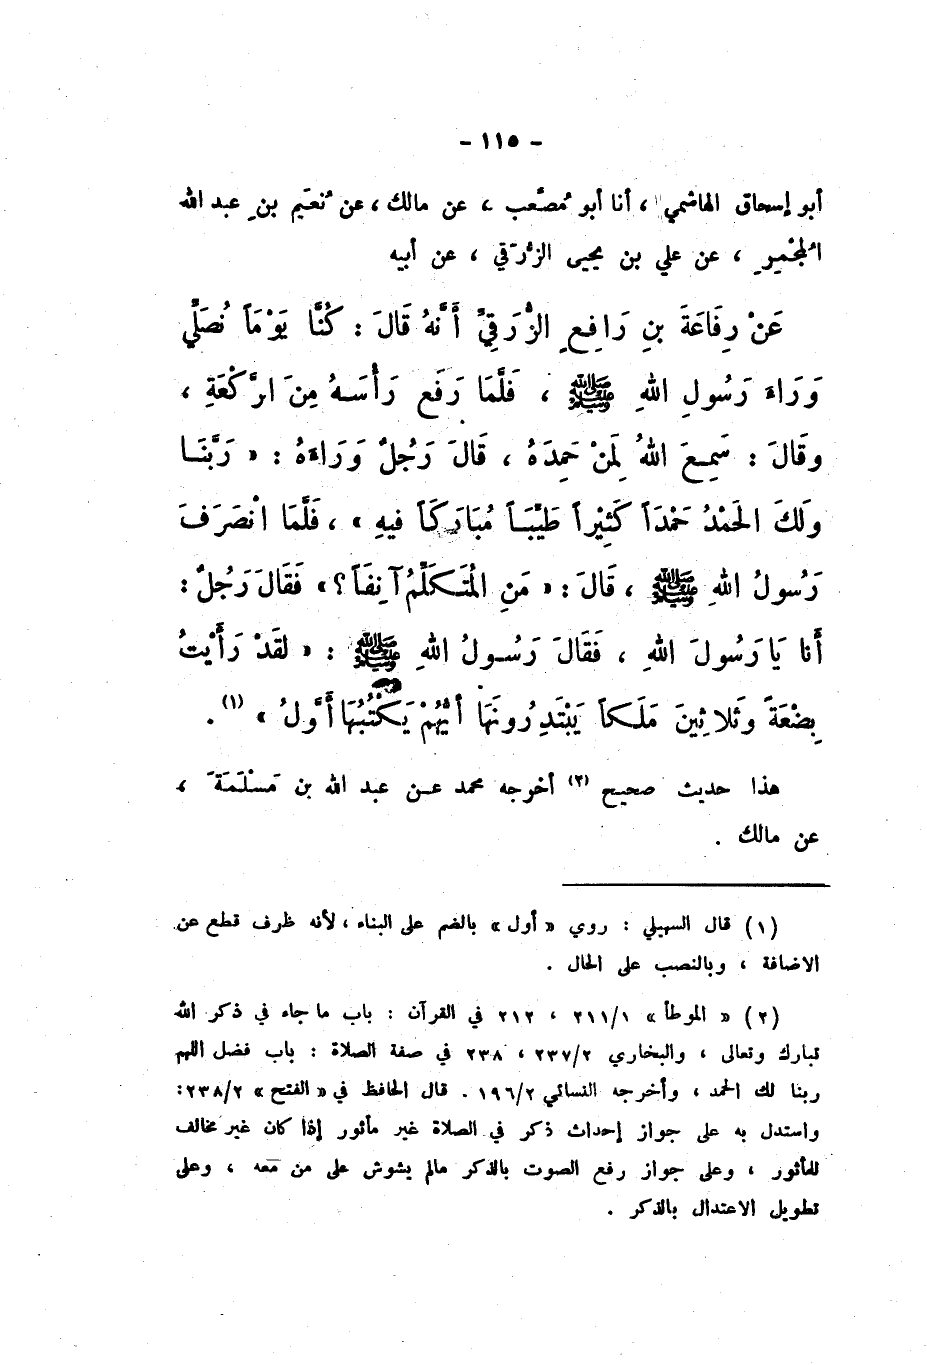 - ١١٥ -
أبو إسحاق الهاشمي ، أنا أبو مُصعَب ، عن مالك ، عن نُعَيم بنِ عبد الله
المُجْمِرِ ، عن علي بن يحيى الزُّرَقي ، عن أبيه
عَنْ رِفَاعَةَ بنِ رَافِعٍ الزُّرَقِيِّ أَنَّهُ قَالَ : كُنَّا يَوْمَاً نُصَلِّي
وَرَاءَ رَسُولِ اللهِ ﷺ ، فَلَّمَا رَفَع رَأْسَـهُ مِنَ الرَّكْعَةِ ،
وقَالَ : سَمِـعَ اللهُ لِمَنْ حَمِدَهُ ، قَالَ رَجُلٌ وَرَاءَهُ : « رَبَّنَـا
ولَكَ الحَمْدُ حَمْدَاً كَثِيْراً طَيِّبَـاً مُبَارَكَاً فيهِ » ، فَلَّمَا انْصَرَفَ
رَسُولُ اللهِ ﷺ ، قَالَ : « مَنِ المُتَـكَلِّمُ آنِفَاً ؟ » فَقَالَ رَجُلٌ :
أَنا يَا رَسُولَ اللهِ ، فَقَالَ رَسُـولُ اللهِ ﷺ : « لقَدْ رَأَيْتُ
بِضْعَةً وَثَلاثِينَ مَلَـكاً يَبْتَدِرُونَهَا أَيُّهُمْ يَكْتُبُهَا أَوَّلُ » (١) .
هذا حديث صحيح (٢) أخرجه محمد عـن عبد الله بن مَسْلَمَةَ ،
عن مالك .
(١) قال السهيلي : روي « أول » بالضم على البناء ، لأنه ظرف قطع عن
الاضافة ، وبالنصب على الحال .
(٢) « الموطأ » ٢١١/١ ، ٢١٢ في القرآن : باب ما جاء في ذكر الله
تبارك وتعالى ، والبخاري ٢٣٧/٢ ، ٢٣٨ في صفة الصلاة : باب فضل اللهم
ربنا لك الحمد ، وأخرجه النسائي ١٩٦/٢ . قال الحافظ في « الفتح » ٢٣٨/٢ :
واستدل به على جواز إحداث ذكر في الصلاة غير مأثور إذا كان غير مخالف
للمأثور ، وعلى جواز رفع الصوت بالذكر مالم يشوش على من معه ، وعلى
تطويل الاعتدال بالذكر .